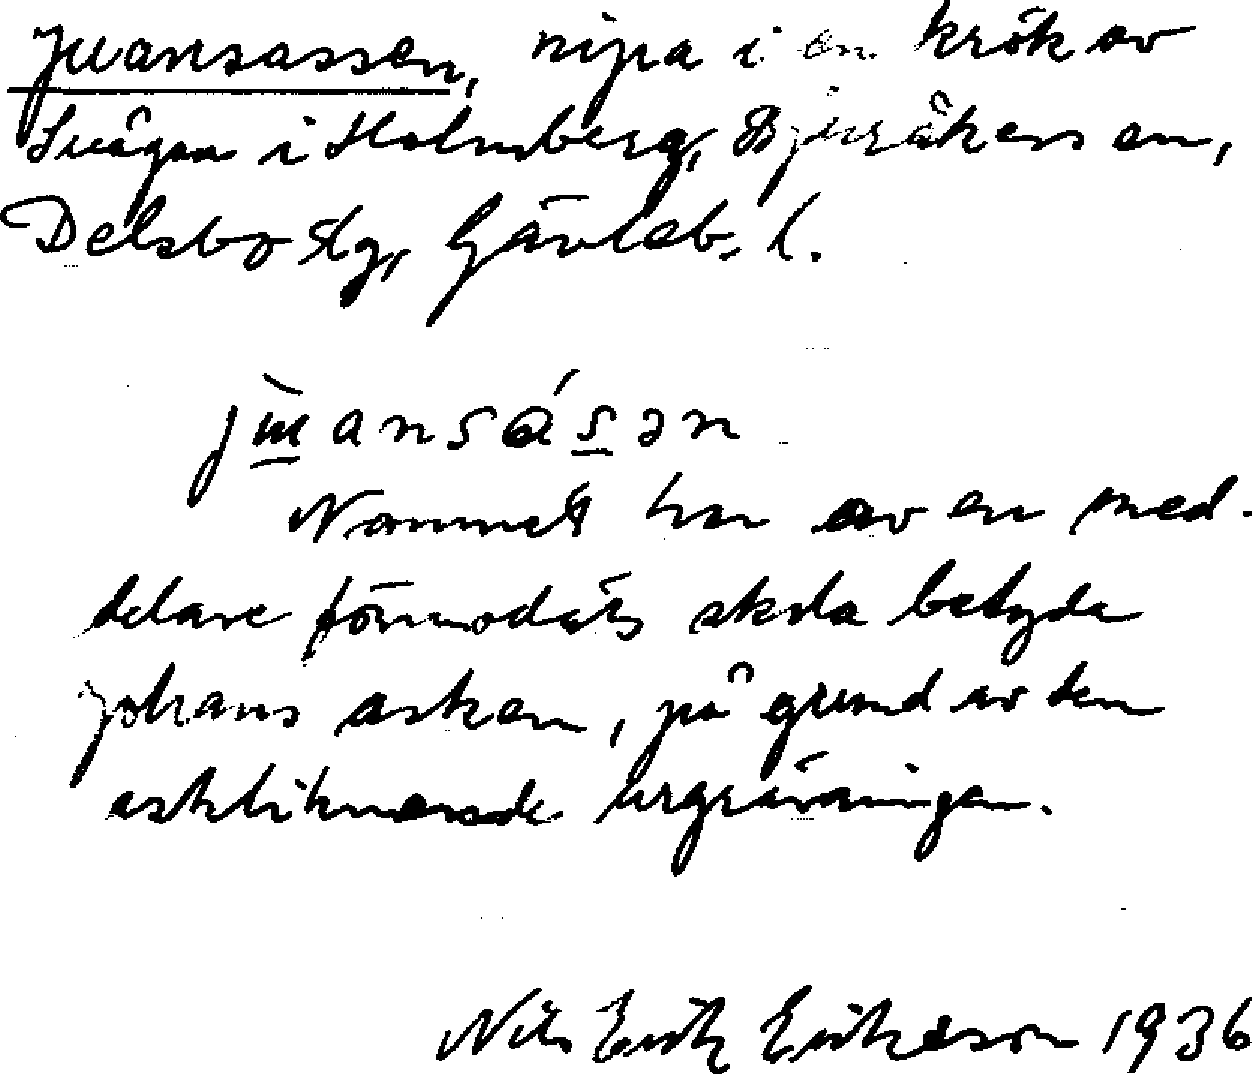 Juansassen, nipa i en krök av
Svågan i Holmberg, Bjuråkers sn,
Delsbo tg, Gävleb. l.
Namnet har av en med-
delare förmodats skola betyda
Johans asken, på grund av den
askliknande urgrävningen.
Nils Erik Eriksson 1936